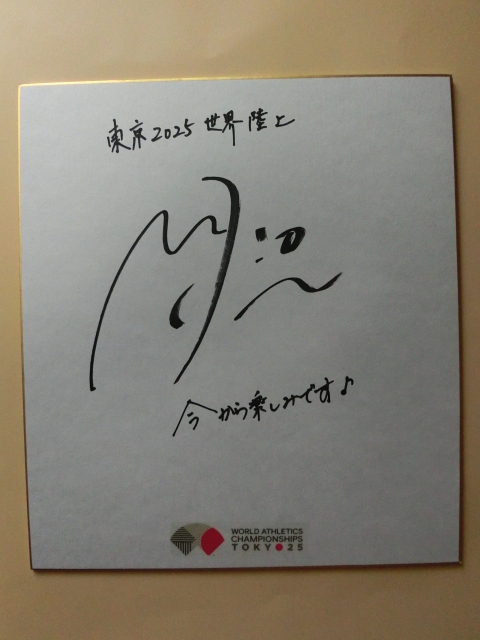 東京2025世界陸上
今から楽しみです♪
WORLD ATHLETICS
CHAMPIONSHIPS
TOKYO25